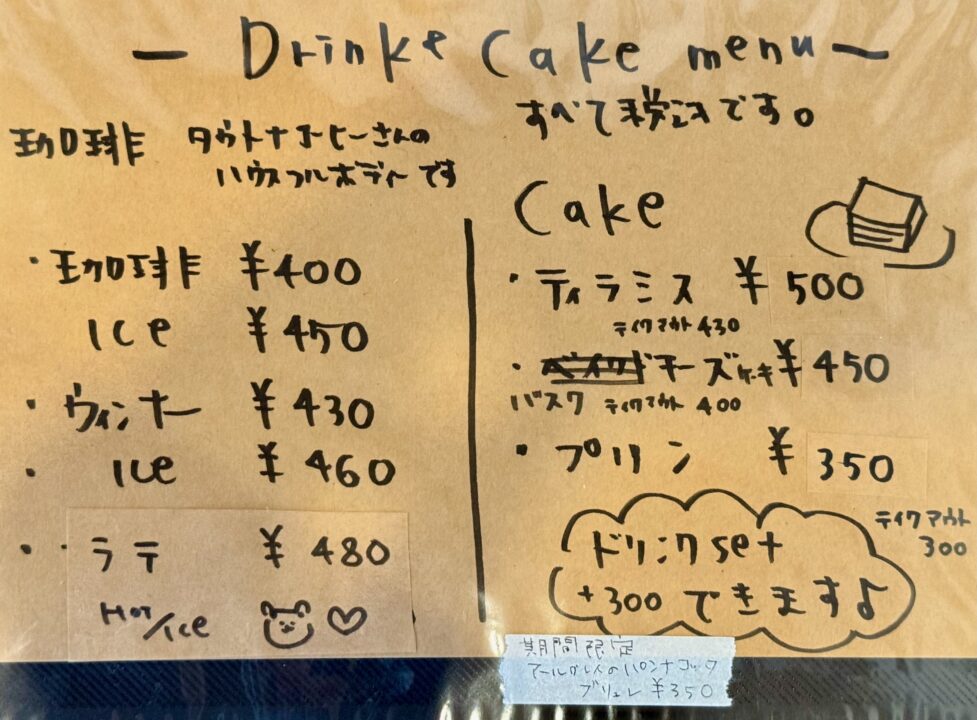 Drink & Cake menu
すべて税込です。
珈琲 タウトナコーヒーさんの
ハウスフルボディーです
・珈琲 ¥400
Ice ¥450
・ウィンナー ¥430
・ Ice ¥460
・・ラテ ¥480
Hot/Ice
Cake
・ティラミス ¥500
テイクアウト 430
・チーズケーキ ¥450
バスク テイクアウト 400
・プリン ¥350
テイクアウト
300
ドリンクset
+300 できます♪
期間限定
アールグレイのパンナコッタ
ブリュレ ¥350